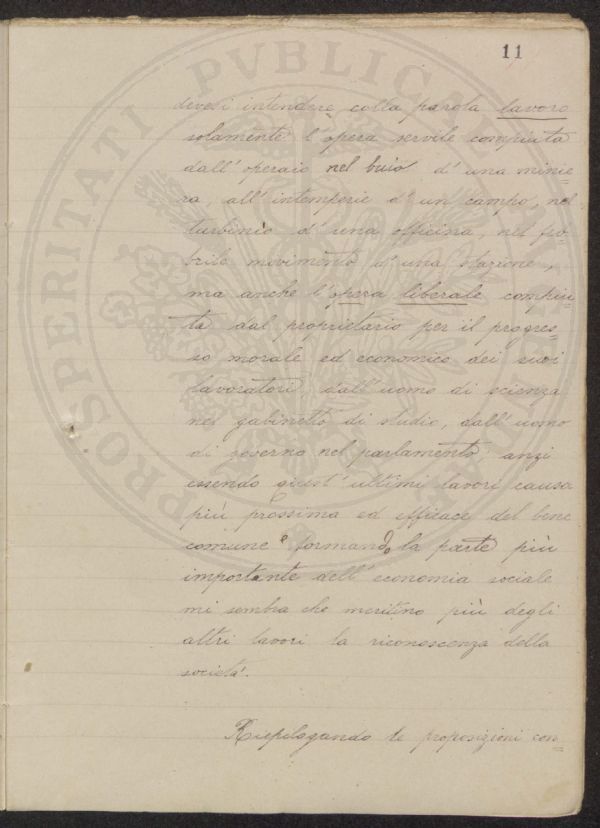 11
devesi intendere colla parola lavoro
solamente l'opera servile compiuta
dall'operaio nel buio d'una minie=
ra, all'intemperie d'un campo, nel
turbinio d'una officina, nel feb=
brile movimento d'una stazione,
ma anche l'opera liberale compiu=
ta dal proprietario per il progres=
so morale ed economico dei suoi
lavoratori, dall'uomo di scienza
nel gabinetto di studio, dall'uomo
di governo nel parlamento; anzi
essendo quest'ultimi lavori causa
più prossima ed efficace del bene
comune e formando la parte più
importante dell'economia sociale
mi sembra che meritino più degli
altri lavori la riconoscenza della
società.
Riepilogando le proposizioni con=
PROSPERITATI PVBLICAE